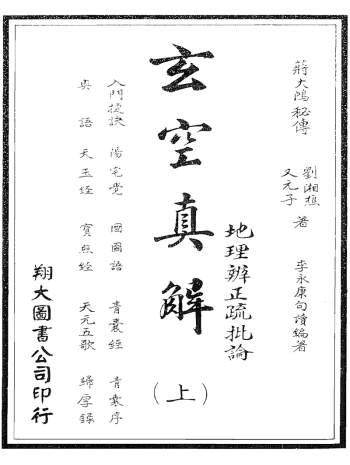 蔣大鴻秘傳
劉湘樵
又元子
著
李永康句讀編著
地理辨正疏批論
玄空真解
(上)
入門捷訣 陽宅覺 國國語 青囊經 青囊序
奥語 天玉經 寶照經 天元五歌 歸厚錄
翔大圖書公司印行